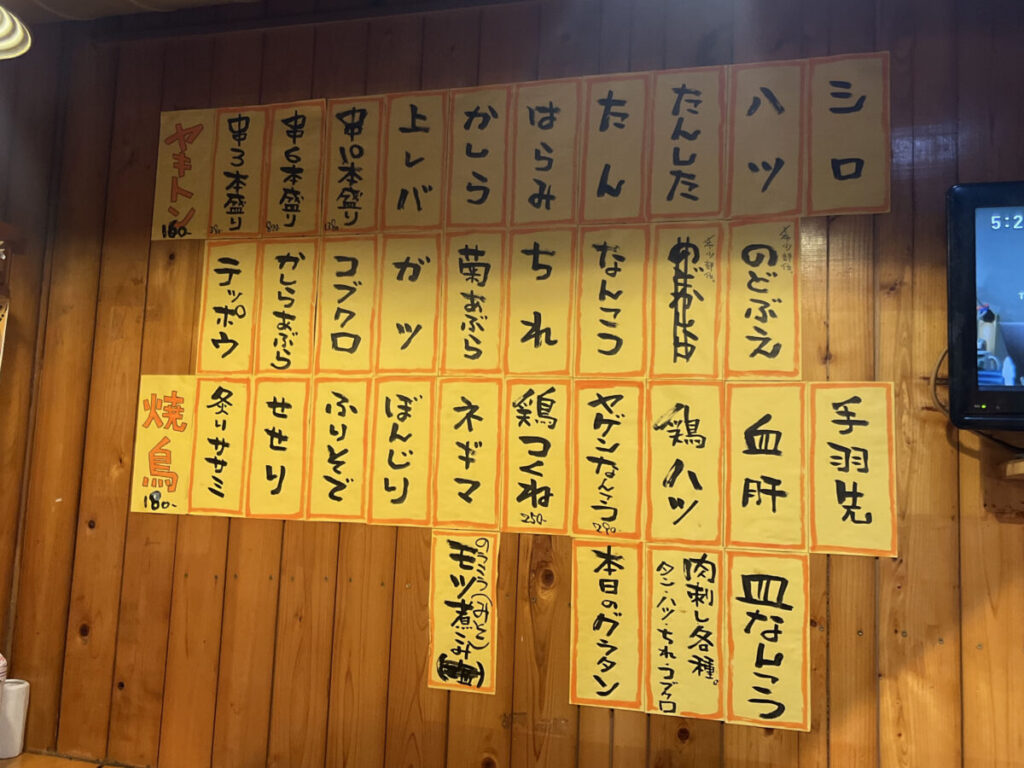 ヤキトン
160-
串3本盛り
串6本盛り
串10本盛り
上レバ
かしら
はらみ
たん
たんした
ハツ
シロ
テッポウ
かしらあぶら
コブクロ
ガツ
菊あぶら
ちれ
なんこつ
希少部位。
のどぶえ
希少部位。
焼鳥
180-
炙りササミ
せせり
ふりそで
ぼんじり
ネギマ
鶏つくね
250-
ヤゲンなんこつ
290-
鶏ハツ
血肝
手羽先
のうこう(みそ)
モツ煮こみ
本日のグラタン
肉刺し各種。
タン・ハツ・ちれ・コブクロ
皿なんこつ
5:2